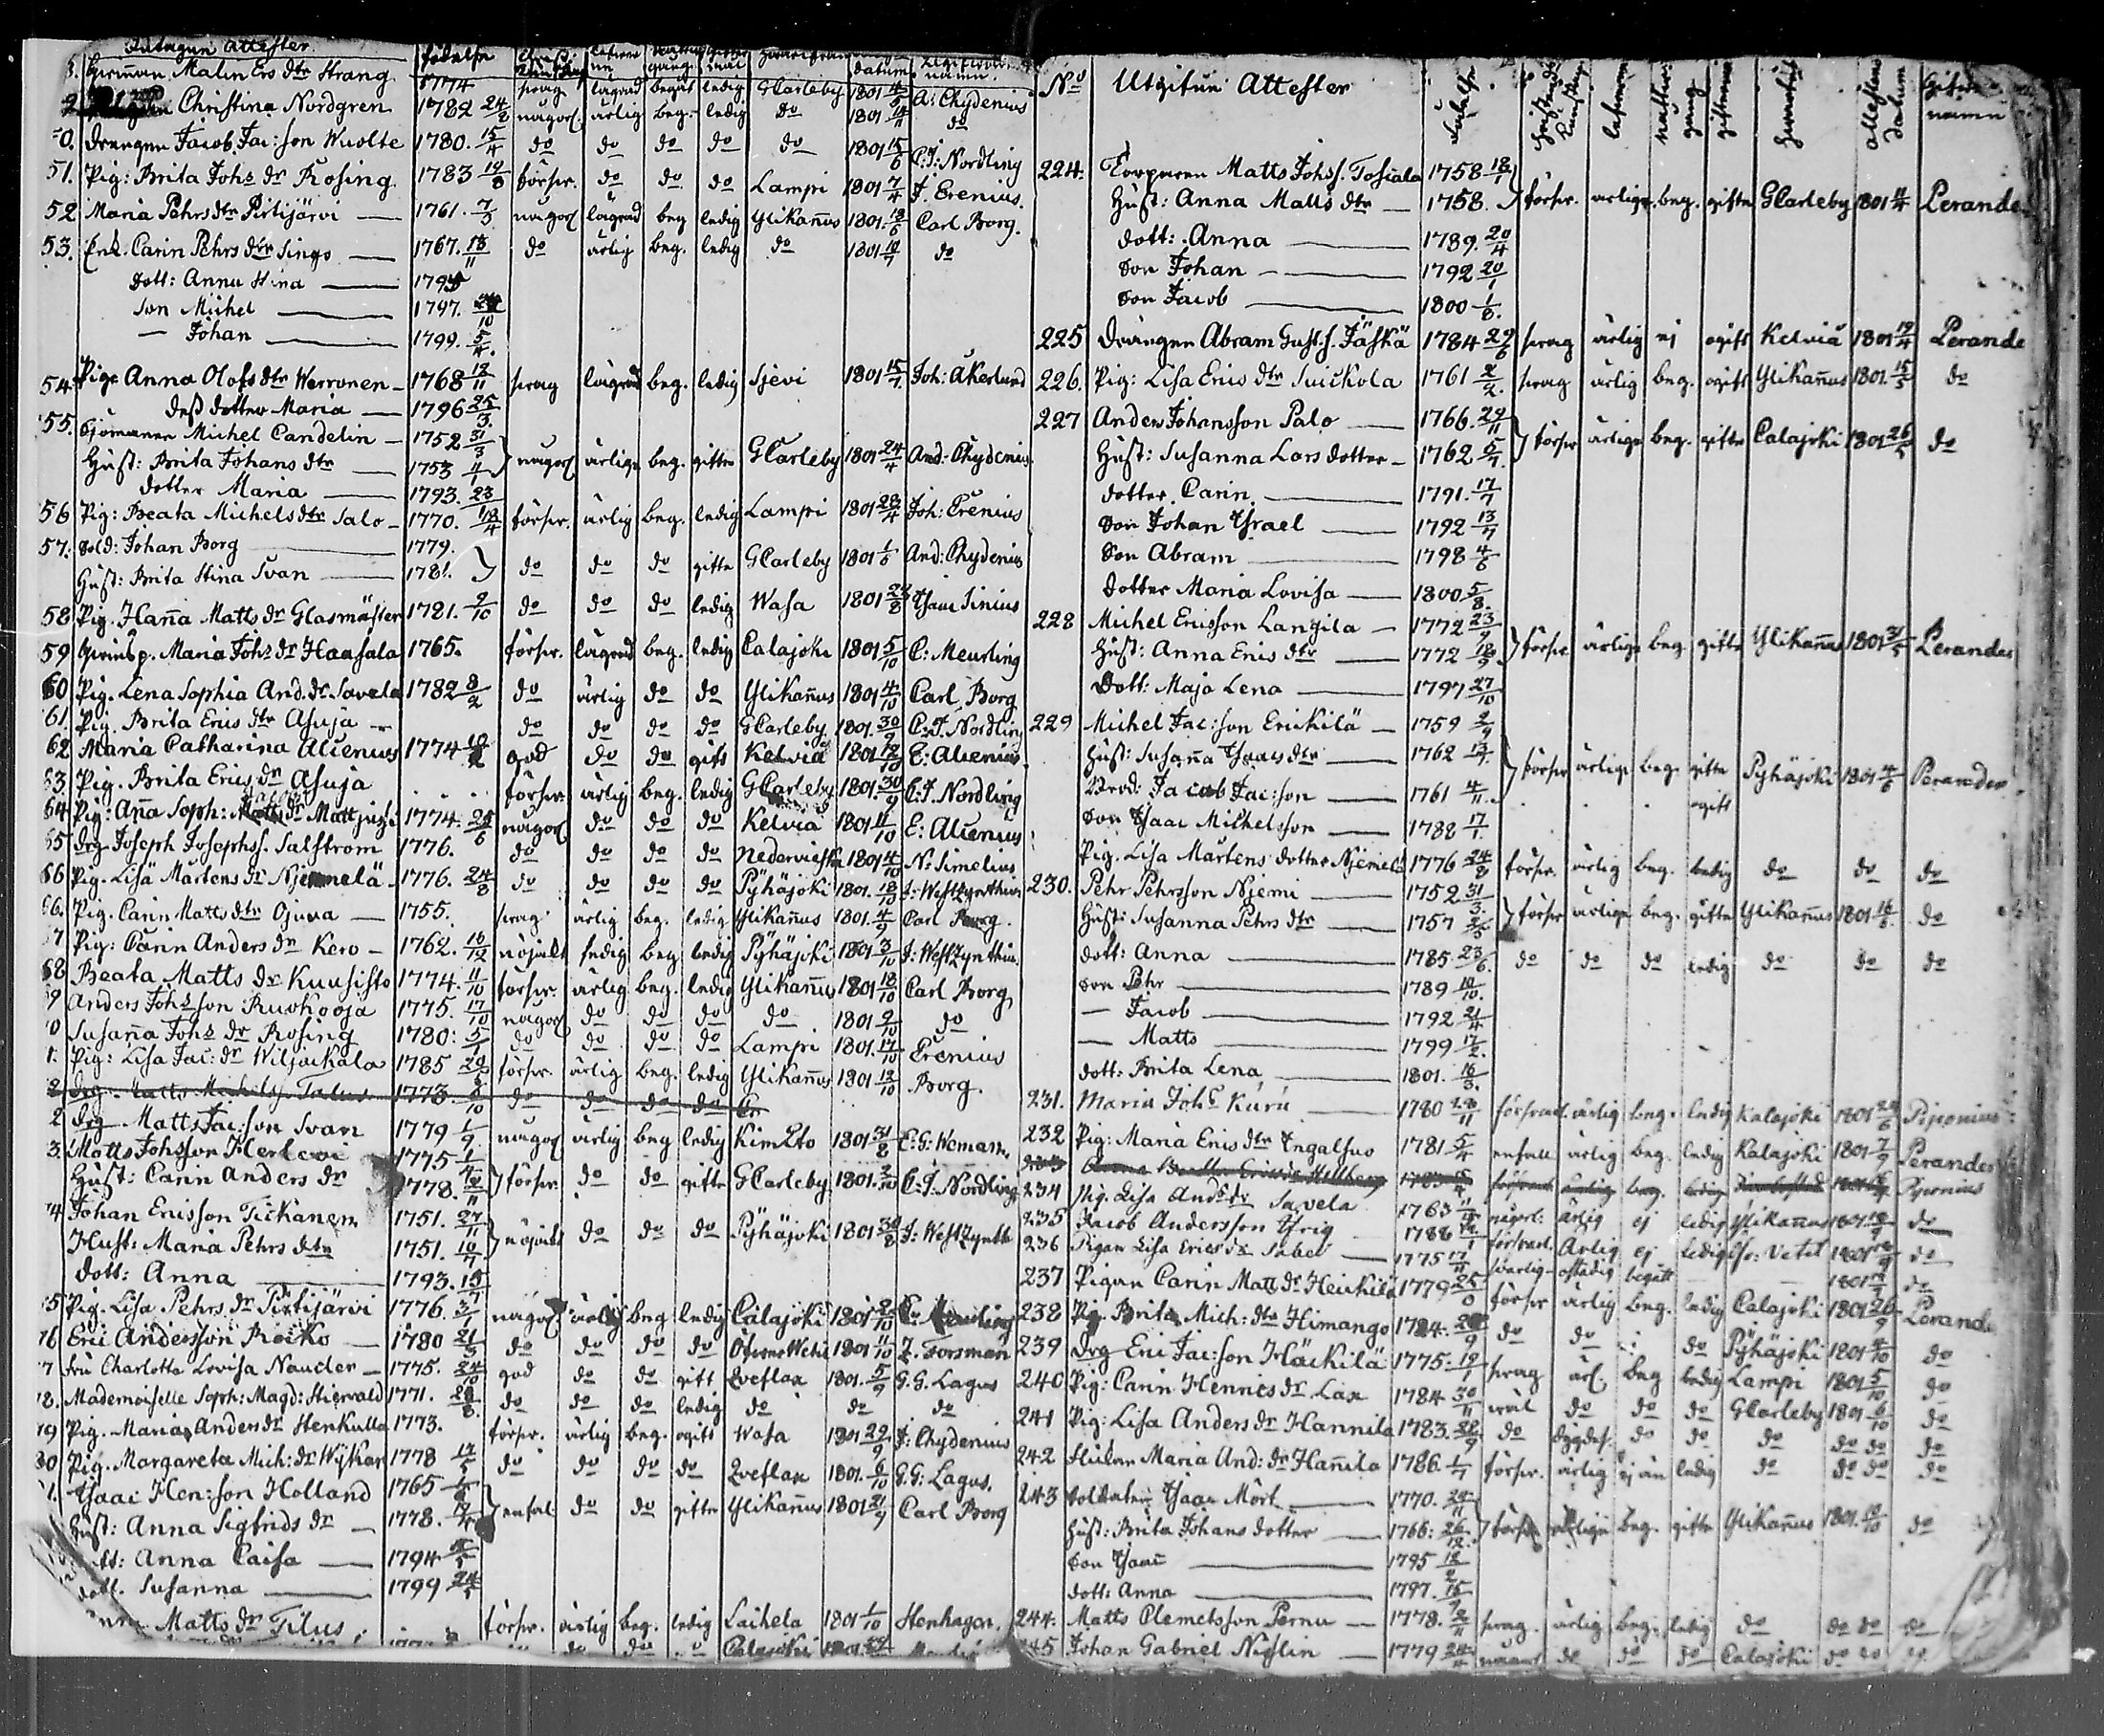 Intagen Attester. födelse datum namn.
Qvinnan Malin Ers dtr Strang 1774 svag lägrad begåt ledig GCarleby 1801 4/5 A: Chydenius
Christina Nordgren 1782 24/2 någorl. ärlig beg. ledig do 1801 14/11 do
0. Drängen Jacob Jac:son Wuolte 1780. 15/4 do do do do do 1801 15/6 C.J: Nordling
51. Pig: Brita Johs dr Rosing 1783 19/8 försv. do do do Lampi 1801 7/4 J. Erenius.
52 Maria Pehrs dtr Pirtijärvi — 1761. 7/3 någorl lägrad beg ledig Ylikanus 1801. 18/6 Carl Borg.
53. Enk. Carin Pehrs dtr Singo — 1767. 13/11 do ärlig beg. ledig do 1801 10/7 do
Dott: Anna Stina — 1795
Son Michel — 1797. 10
— Johan — 1799. 5/4.
54 Piga Anna Olofs dtr Werronen — 1768 12/11 svag lägrad beg. ledig Sjevi 1801 15/7. Joh: Åkerlund
Dess dotter Maria — 1796 25/3.
55. Sjömannen Michel Candelin — 1752 31/3
Hust: Brita Johans dtr — 1753 4/1 } någorl ärlige beg. gifte GCarleby 1801 24/4 And: Chydenius
Dotter Maria — 1793. 23
56 Pig: Beata Michels dtr Salo — 1770. 18/4 försv. ärlig beg. ledig Lampi 1801 28/4 Joh: Erenius
57. Sold: Johan Borg — 1779.
Hust: Brita Stina Svan — 1781. } do do do gifte GCarleby 1801 1/6 And: Chydenius
58 Pig. Hanna Matts dr Glasmäster 1781. 9/10 do do do ledig Wasa 1801 23/8 Isaac Sinius
59 Qvinsp. Maria Johs dr Haasala 1765. försv. lägrad beg. ledig Calajoki 1801 5/10 C: Meurling
60 Pig. Lena Sophia And. dr Savela 1782 8/2 do ärlig do do Ylikanus 1801 4/10 Carl Borg
61. Pig. Brita Erics dtr Asuja — do do do do GCarleby 1801. 30/9 C.J. Nordling
62 Maria Catharina Alcenius 1774 god do do gift Kelviå 1801 12/10 E: Alcenius
63. Pig. Brita Erics dr Asuja försv. ärlig beg. ledig GCarleby 1801. 30/9 C.J. Nordling
64 Pig: Anna Soph: Matts dr 1774. 24/6 någorl do do do Kelviå 1801 11/10 E: Alcenius
65 Drg Joseph Josephss. Salström 1776. do do do do Nederveteli 1801 4/10 N: Simelius
66 Pig. Lisa Mårtens dr Njemelä — 1776. 24/8 do do do do Pyhäjoki 1801. 18/10 J: Westzynthius
66. Pig. Carin Matts dtr Ojuva — 1755. svag ärlig beg. ledig Ylikanus 1801. 4/9 Carl Borg.
7 Pig: Carin Anders dr Kero — 1762. 16/12 nöjakt ledig beg ledig Pyhäjoki 1801 3/10 J: Westzynthius
68 Beata Matts dr Kuusisto 1774. 11/10 försv. ärlig beg. ledig Ylikanus 1801 18/10 Carl Borg
9 Anders Johsson Ruokooja 1775. 17/10 någorl do do do do 1801 9/10 do
0 Susanna Johs dr Rosing 1780: 5/7 do do do do Lampi 1801. 17/10 Erenius
1. Pig: Lisa Jac: dr Wiljackala 1785 20 försv. ärlig beg. ledig Ylikanus 1801 12/10 Borg.
2 Drg. Matts Talus 1773. 8/10 do do do do
2 Drg Matts Jac:son Svan 1779 1/9. någorl ärlig beg ledig Kimito 1801 31/8 E.G: Weman.
3. Matts Johsson Herlevi 1775 1/4
Hust: Carin Anders dr 1778. 12/11 } försv. do do gifte GCarleby 1801. 3/10 C.J. Nordling
74 Johan Ericsson Tickanen 1751. 27/11
Hust: Maria Pehrs dtr 1751. 10/7 } nöjakt do do do Pyhäjoki 1801 30/8 J: Westzynth
Dott: Anna — 1793. 15/7
5 Pig. Lisa Pehrs dr Pirtijärvi 1776. 3/1 någorl ärlig beg ledig Calajoki 1801 2/10 C: Meurling
76 Eric Andersson Roiko — 1780 21/3 do do do do Öfverveteli 1801 11/10 Z. Forsman
7 Fru Charlotta Lovisa Nauder — 1775. 24/10 god do do gift Evestax 1801. 5/9 G.G. Lagus
78. Mademoiselle Soph: Magd: Stiervald 1771. 28/8. do do do ledig do do do
79 Pig. Maria Anders dr Stenkulla 1773. försv. ärlig beg. ogift Wasa 1801 29/9 J: Chydenius
80 Pig. Margareta Mich: dr Wykar 1778 17/5 do do do do Evestax 1801. 6/10 G.G: Lagus.
1. Isaac Hen:son Holland 1765
Hust: Anna Sigfrids dr — 1778. } enfal do do gifte Ylikanus 1801 21/9 Carl Borg
Dott: Anna Caisa — 1794
Dott. Susanna — 1799 24
Matts dr Tilus försv. ärlig beg. ledig Laihela 1801 1/10 Stenhagen.
do do Calajoki
No Utgifne Attester Födelse namn
224. Torparen Matts Johss. Tosiala 1758 18/1
Hust: Anna Matts dtr — 1758. } försv. ärlige. beg. gifte GCarleby 1801 11/4 Perander
Dott: Anna — 1789. 20/4
Son Johan — 1792 20/1
Son Jacob — 1800 1/8.
225 Drängen Abram Gust.s. Jäskä 1784 29/6 svag ärlig ej ogift Kelviå 1801 19/4 Perande
226. Pig: Lisa Erics dtr Suickola 1761 2/2. svag ärlig beg. ogift Ylikanus 1801. 15/5 do
227 Anders Johansson Palo — 1766. 29/11
Hust: Susanna Lars dotter — 1762 5/7. } försv ärlige beg. gifte Calajoki 1801 26/5 do
Dotter Carin — 1791. 17/7
Son Johan Israel — 1792 13/7
Son Abram — 1798 4/6
Dotter Maria Lovisa — 1800 5/8.
228 Michel Ericsson Langila — 1772 23/9
Hust: Anna Erics dtr — 1772 18/9 } försv ärlige beg. gifte Ylikanus 1801 31/5 Perander
Dott: Maja Lena — 1797 27/10
229 Michel Jac:son Erickilä — 1759 2/9
Hust: Susanna Isaacs dtr — 1762 13/7. } försv ärlige beg. gifte Pyhäjoki 1801 4/6 Perander
Brod: Jacob Jac:son — 1761 4/11. ogift
Son Isaac Michelsson — 1788 17/1.
Pig. Lisa Mårtens dotter Njemelä 1776 24/8 försv. ärlig beg. ledig do do do
230. Pehr Pehrsson Njemi — 1752 31/3.
Hust: Susanna Pehrs dtr — 1757 } försv ärlige beg. gifte Ylikanus 1801 16/6 do
Dott: Anna — 1785. 23/6. do do do ledig do do do
Son Pehr — 1789 10/10.
— Jacob — 1792 21/4
— Matts — 1799 17/2.
Dott: Brita Lena — 1801. 16/3.
231. Maria Johs Kuru — 1780 28/11 försvarl. ärlig beg. ledig Kalajoki 1801 24/6 Piponius
232 Pig: Maria Erics dtr Ingalsuo 1781. 5/4 enfall ärlig beg. ledig Kalajoki 1801 7/9 Perander
233 Piponius
234 Pig. Lisa Ands dr Savela 1763 någorl: ärlig ej ledig Ylikanus 1801. do
235 Jacob Andersson Yrig 1788 försvarl. Ärlig ej ledig Öfv: Vetil 1801 do
236 Pigan Lisa Erics dr Sabel — 1775 17/11 svarlig ostadig begått 1801 do
237 Pigan Carin Matts dr Heickilä 1779 25/8 försv ärlig beg. ledig Calajoki 1801 26/9 Perande
238 Pig. Brita Mich: dtr Himango 1784. do do do Pyhäjoki 1801 4/10 do
239 Drg Eric Jac:son Häckilä 1775. 19/1 svag ärl. beg ledig Lampi 1801 5/10 do
240 Pig: Carin Henrics dr Lax 1784 30/11 do do do GCarleby 1801 6/10 do
241 Pig: Lisa Anders dr Hannila 1783. 28/9 do do do do do do do
242 Maria And: dr Hannila 1786. 1/7 försv. ärlig ej än ledig do do do do
243 Soldaten Isaac Mört — 1770. 29/11
Hust: Brita Johans dotter — 1766: 26/12. } försv ärlige beg. gifte Ylikanus 1801. 10/10 do
Son Isaac — 1795 12/2
Dott: Anna — 1797. 15/9
244. Matts Clemetsson Pernu — 1778. 2/11 svag. ärlig beg. ledig do do do do
245 Johan Gabriel Niglin — 1779 24 do do do Calajoki do do do